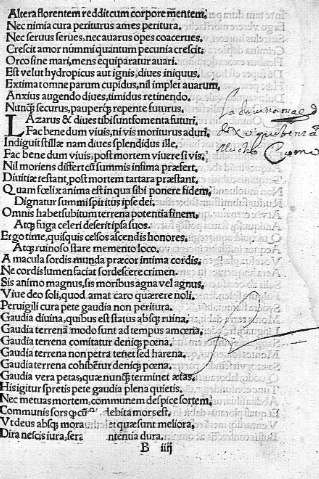 Altera florentem redditeum corpore mentem,
Nec nimia cura periturus ames peritura,
Nec seruus serues; nec auarus opes coacerues,
Crescit amor nummi quantum pecunia crescit;
Orco sine mari, mens equiparatur auari.
Est velut hydropicus aut ignis, diues iniquus,
Extima tomne parum cupidus, nil implet auarum,
Anxius augendo diues, timidus retinendo.
Nunq̃ securus, pauperq; repente futurus,
LAzarus & diues tibi sunt fomenta futuri,
Fac bene dum viuis, ni vis moriturus aduri,
Indiguit stillæ nam diues splendidus ille,
Fac bene dum viuis, post mortem viuere si vis,
Nil moriens differt es summis intima præfert,
Diuitiæ restant, post mortem tartara præstant,
Quam fœlix anima est in qua sibi ponere sidem,
Dignatur summi spiritus ipse dei.
Omnis habet subitum terrena potentia finem,
Atq; fuga celeri deserit ipsa suos.
Ergo time, quisquis celsos ascendis honores,
Atq; ruinoso stare memento loco.
A macula sordis munda præcor intima cordis,
Ne cordis lumen faciat sordescere crimen.
Sis animo magnus, sis moribus agna vel agnus,
Viue deo soli, quod amat caro quærere noli.
Peruigili cura pete gaudia non peritura.
Gaudia diuina, quibus est status absq; ruina,
Gaudia terrena modo sunt ad tempus amœna,
Gaudia terrena comitatur deniq; pœna,
Gaudia terrena non petra tenet sed harena,
Gaudia terrena cohibetur deniq; pœna,
Gaudia vera petas, quæ nunq̃ terminet ætas,
His igitur spretis pete gaudia plena quietis,
Nec metuas mortem, communem despice sortem,
Communis sors debita mors est,
Vt deus absq; mora et quæ sunt meliora,
Dira nescis iura, sententia dura.
B iiij